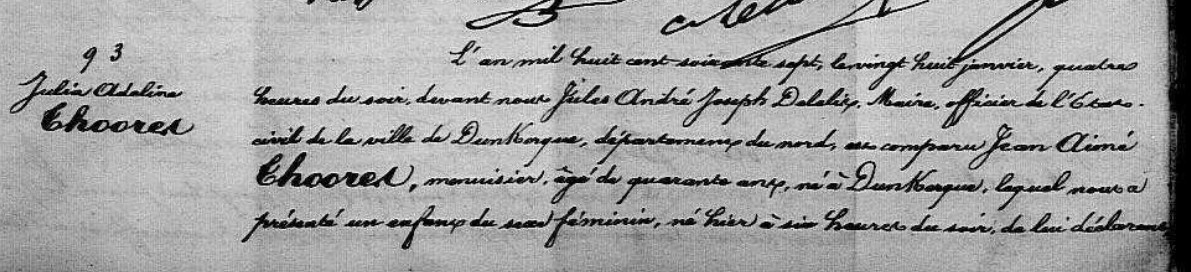 93
Julia Adeline
Thooret
L'an mil huit cent soixante sept, le vingt huit janvier, quatre
heures du soir, devant nous Jules André Joseph Delelis, Maire, officier de l'Etat-
civil de la ville de Dunkerque, département du nord, est comparu Jean Aimé
Thooret, menuisier, âgé de quarante ans, né à Dunkerque, lequel nous a
présenté un enfant du sexe féminin, né hier à six heures du soir, de lui déclarant